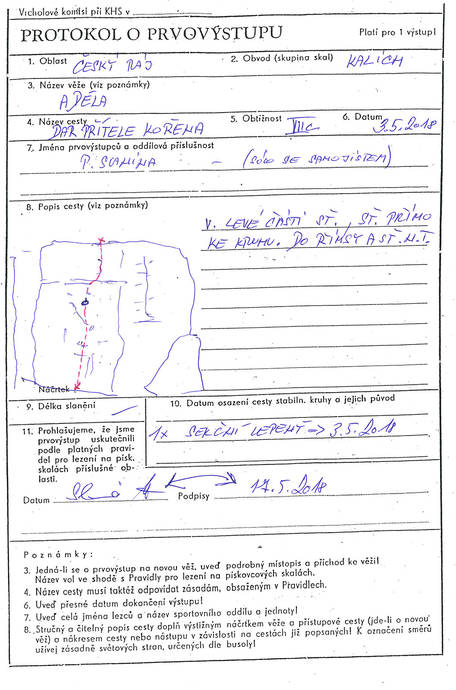 Vrcholové komisi při KHS v
PROTOKOL O PRVOVÝSTUPU Platí pro 1 výstup!
1. Oblast ČESKÝ RÁJ 2. Obvod (skupina skal) KALICH
3. Název věže (viz poznámky)
ADÉLA
4. Název cesty 5. Obtížnost VIIIc 6. Datum 3.5.2018
DAR PŘÍTELE KOŘENA
7. Jména prvovýstupců a oddílová příslušnost
P. SLANINA – (SÓLO SE SAMOJIŠTĚM)
8. Popis cesty (viz poznámky)
V. LEVÉ ČÁSTI ST., ST. PŘÍMO
KE KRUHU. DO ŘÍMSY A ST. N.T.
Náčrtek
9. Délka slanění 10. Datum osazení cesty stabiln. kruhy a jejich původ
11. Prohlašujeme, že jsme
prvovýstup uskutečnili
podle platných pravi-
del pro lezení na písk.
skalách příslušné ob-
lasti.
1x SEKČNÍ LEPENÝ => 3.5.2018
Datum Podpisy 17.5.2018
Poznámky:
3. Jedná-li se o prvovýstup na novou věž, uveď podrobný místopis a příchod ke věži!
Název vol ve shodě s Pravidly pro lezení na pískovcových skalách.
4. Název cesty musí taktéž odpovídat zásadám, obsaženým v Pravidlech.
6. Uveď přesné datum dokončení výstupu!
7. Uveď celá jména lezců a název sportovního oddílu a jednoty!
8. Stručný a čitelný popis cesty doplň výstižným náčrtkem věže a přístupové cesty (jde-li o novou
věž) a nákresem cesty nebo nástupu v závislosti na cestách již popsaných! K označení směrů
užívej zásadně světových stran, určených dle busoly!